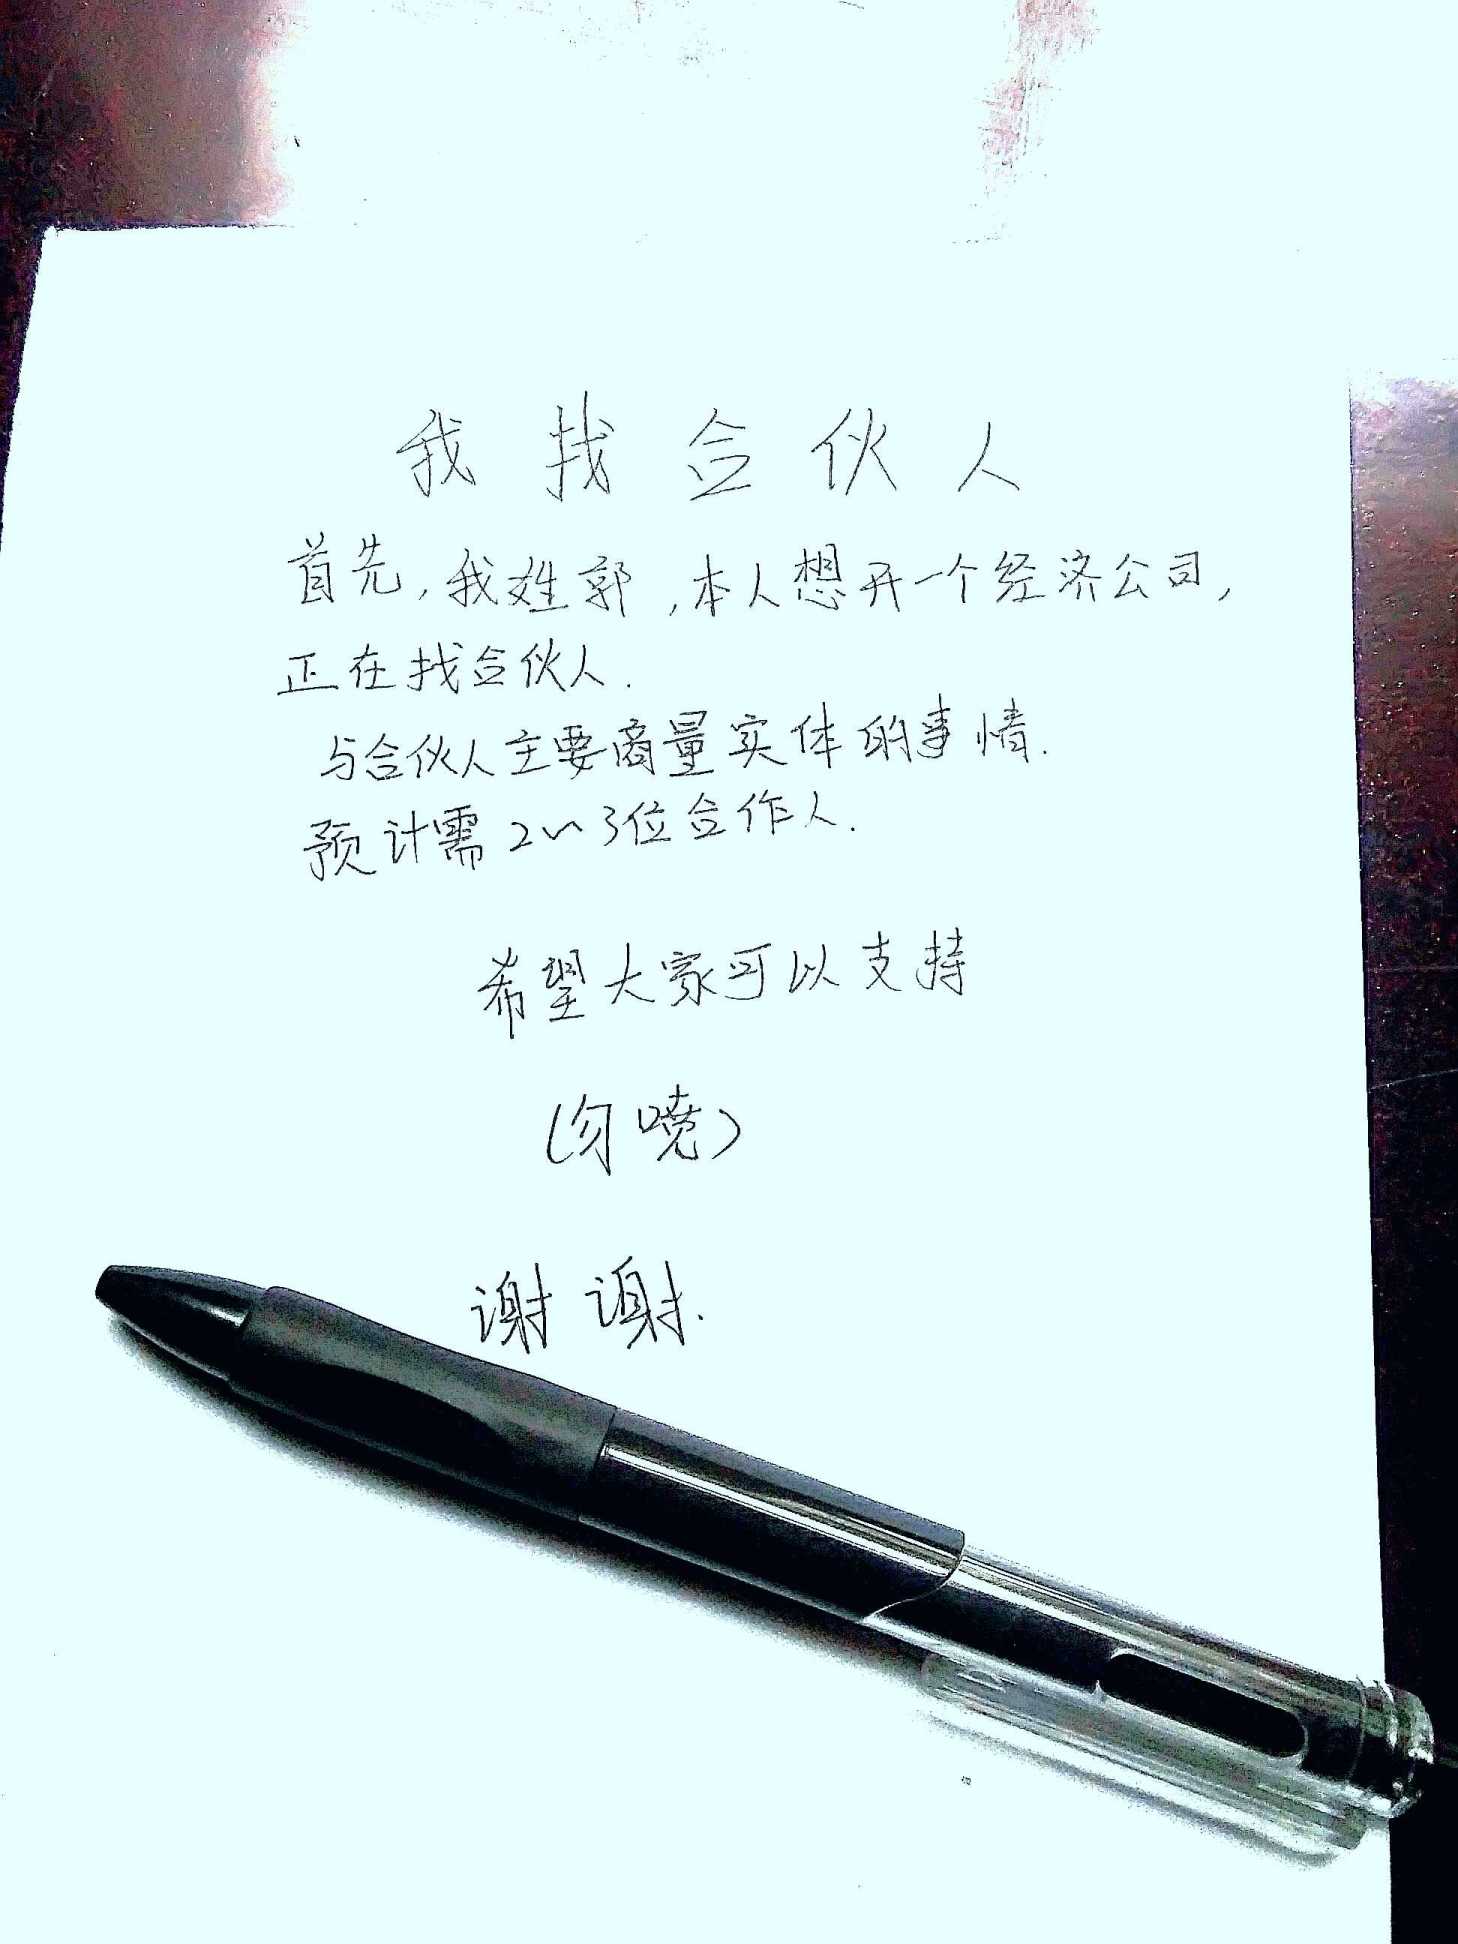 我找合伙人
首先,我姓郭,本人想开一个经济公司,
正在找合伙人.
与合伙人主要商量实体的事情.
预计需2~3位合作人.
希望大家可以支持
(勿喷)
谢谢.